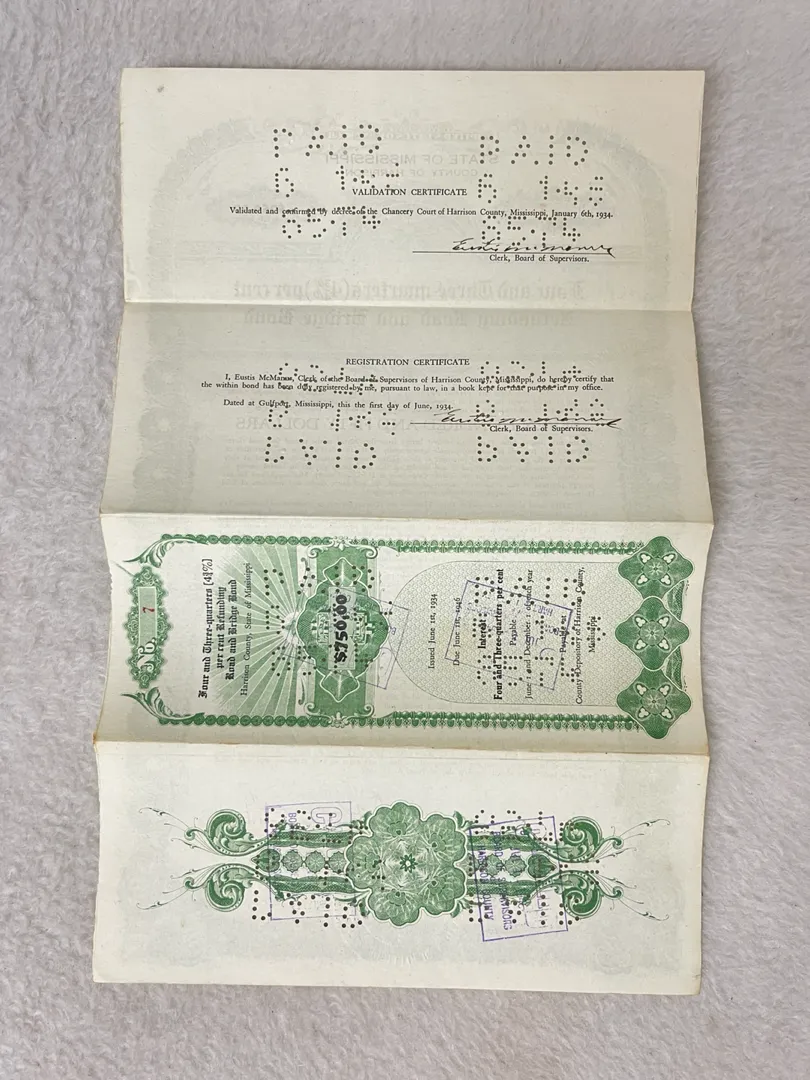 PAID PAID
6 1-46 6 1-46
VALIDATION CERTIFICATE
Validated and confirmed by decree of the Chancery Court of Harrison County, Mississippi, January 6th, 1934.
85-74 85-74
Eustis McManus
Clerk, Board of Supervisors.
REGISTRATION CERTIFICATE
I, Eustis McManus, Clerk of the Board of Supervisors of Harrison County, Mississippi, do hereby certify that
the within bond has been duly registered by me, pursuant to law, in a book kept for that purpose in my office.
Dated at Gulfport, Mississippi, this the first day of June, 1934.
Eustis McManus
Clerk, Board of Supervisors.
PAID PAID
No. 7
Four and Three-quarters (4¾%)
per cent Refunding
Road and Bridge Bond
Harrison County, State of Mississippi
$750.00
Issued June 1st, 1934
Due June 1st, 1946
Interest
Four and Three-quarters per cent
Payable
June 1 and December 1 of each year
Payable at
County Depository of Harrison County,
Mississippi